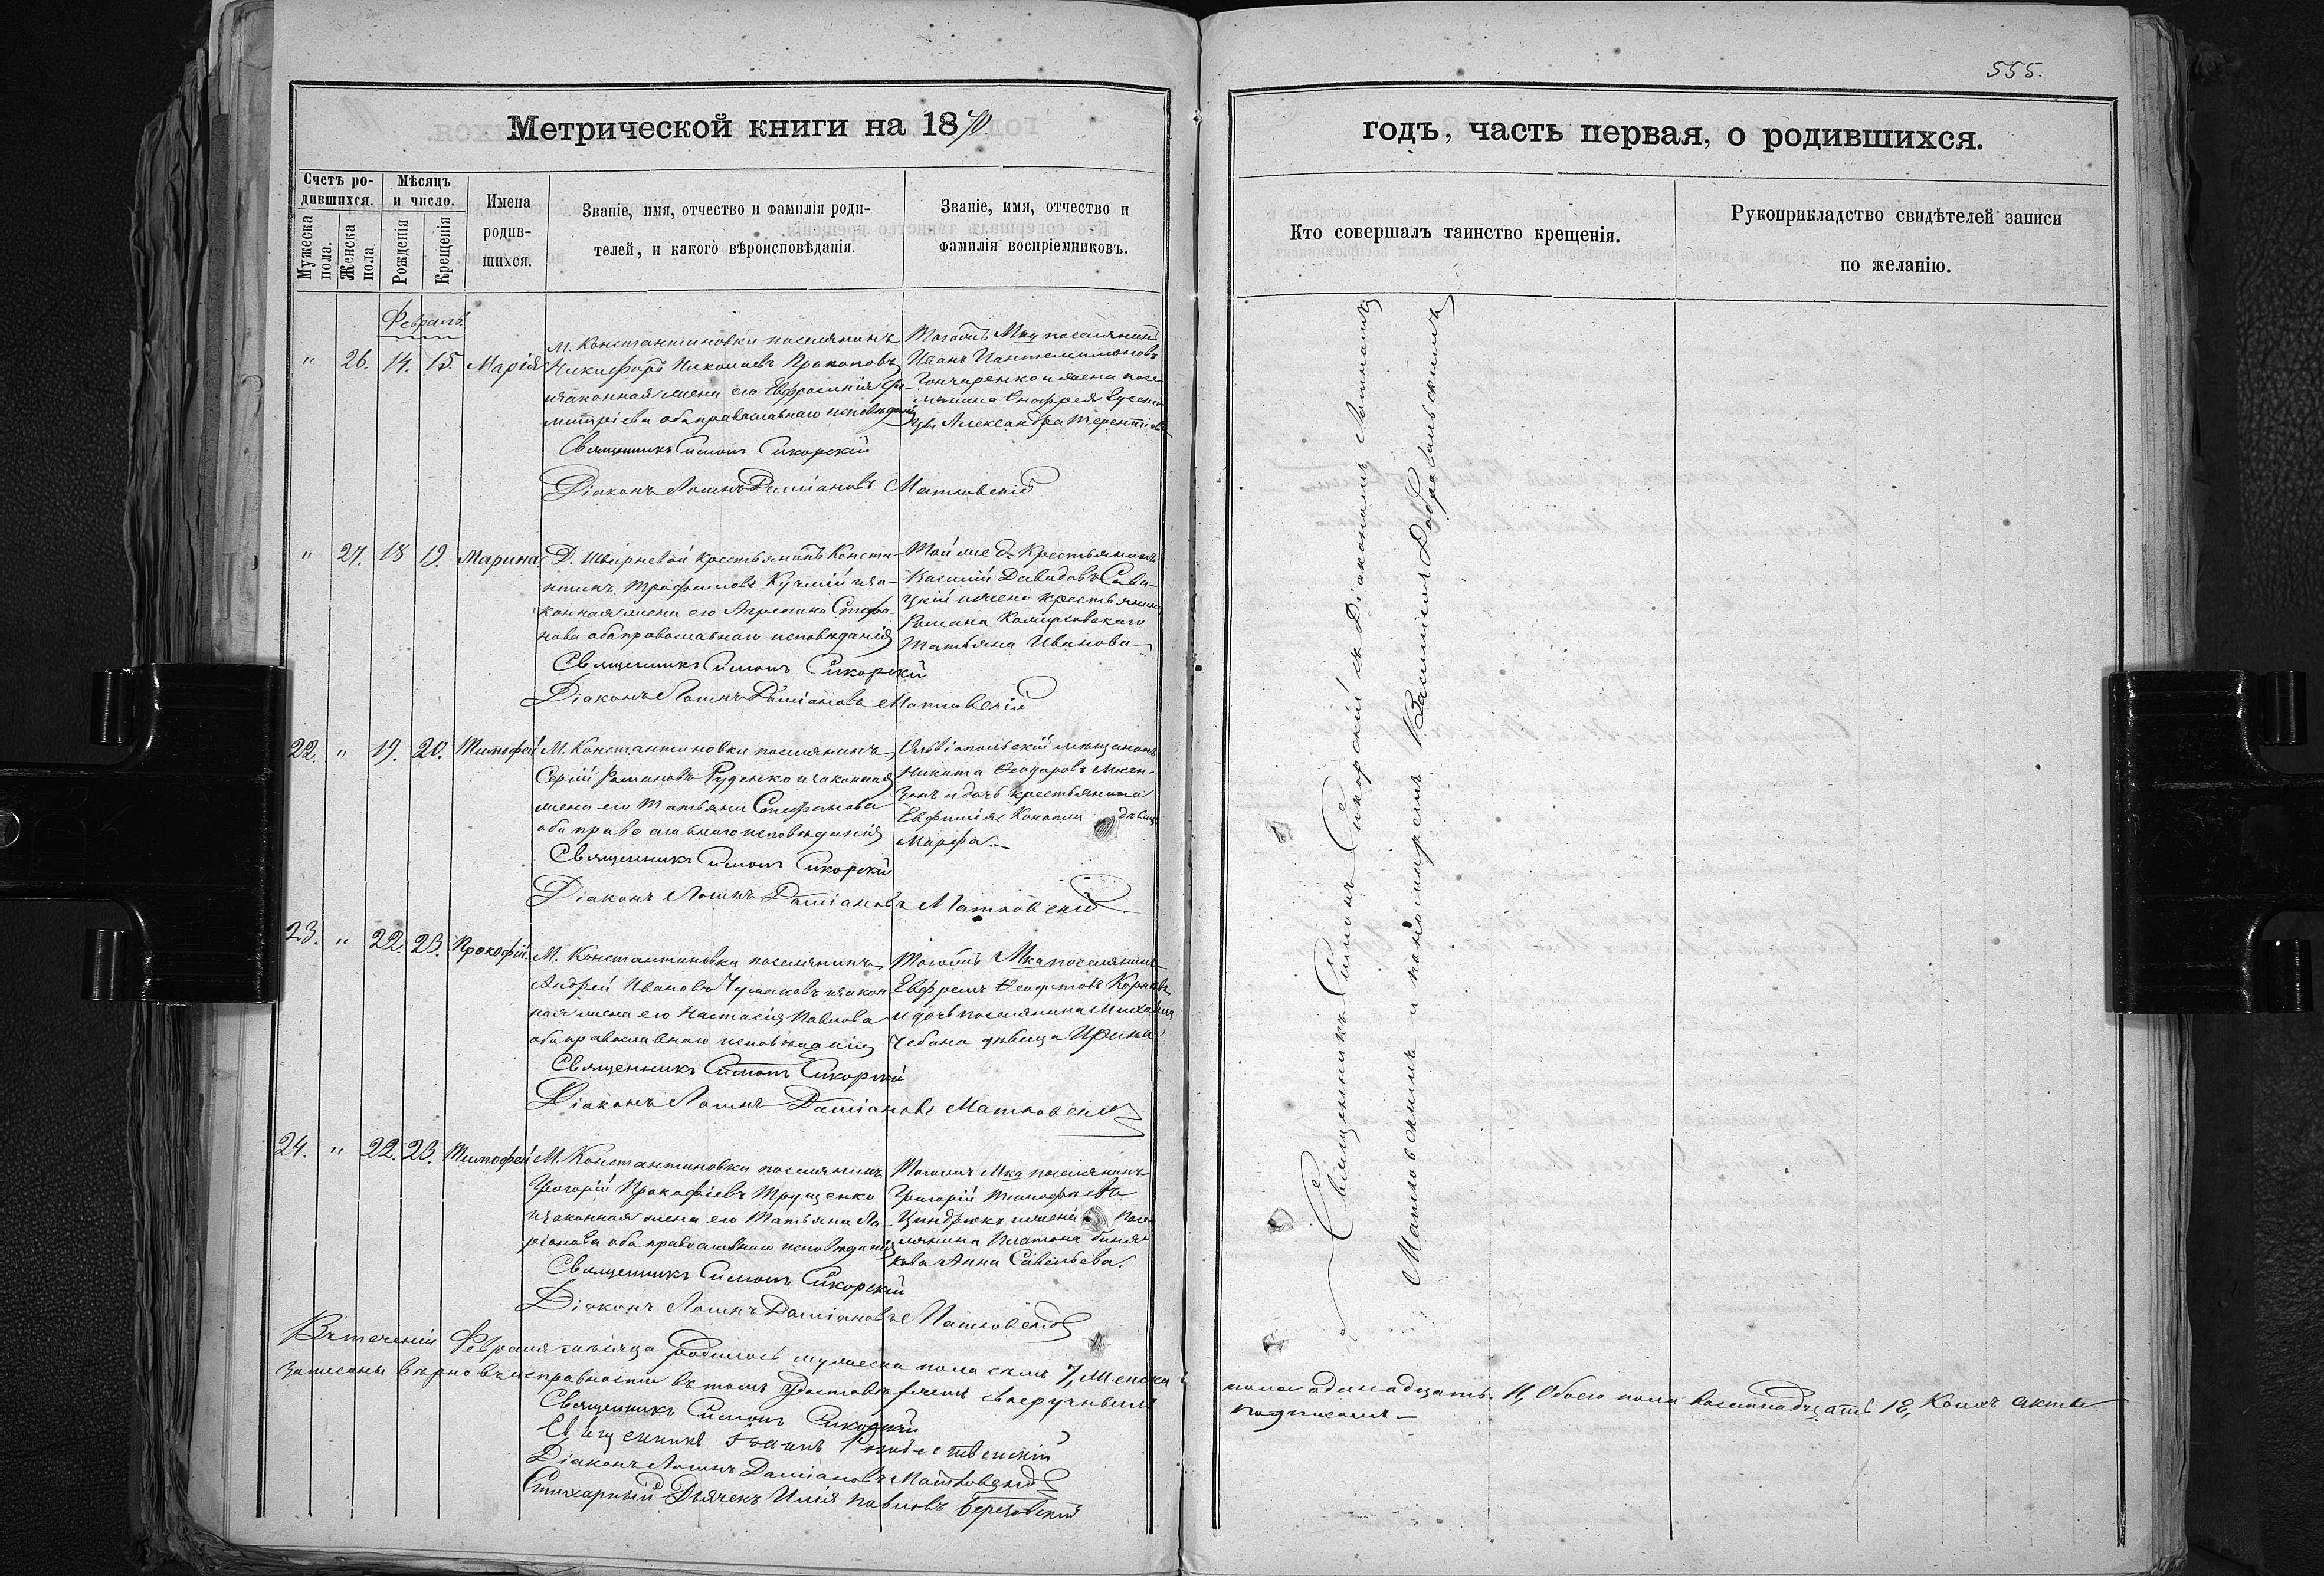 555.
Метрической книги на 1870
годъ, часть первая, о родившихся.
Счетъ родившихся.
Мужеска пола.
Женска пола.
Мѣсяцъ и число.
Рожденія
Крещенія
Имена родившихся.
Званіе, имя, отчество и фамилія роди-
телей, и какого вѣроисповѣданія.
Званіе, имя, отчество и
фамилія воспріемниковъ.
Кто совершалъ таинство крещенія.
Рукоприкладство свидѣтелей записи
по желанію.
Февраль
" 26. 14. 15. Марія
М. Константиновки поселянинъ
Никифоръ Николаевъ Прокоповъ
и законная жена его Евфросинія Ди-
митріева оба православнаго исповѣданія
Тогожъ Мка поселянинъ
Иванъ Пантелимоновъ
Гончаренко и жена посе-
лянина Онофрея
Александра Терентіева
Священникъ Симонъ Сикорскій
Діаконъ Логинъ Даміановъ Матковскій
" 27. 18 19. Марина
Д. крестьянинъ Конста-
нтинъ Трофимовъ Кучмій и за-
конная жена его Агрепина Стефа-
нова оба православнаго исповѣданія
Той же д. Крестьянинъ
Василій Давидовъ Сави-
цкій и жена крестьянина
Романа
Татьяна Иванова
Священникъ Симонъ Сикорскій
Діаконъ Логинъ Даміановъ Матковскій
22. " 19. 20. Тимофей
М. Константиновки поселянинъ
Сергій Романовъ Руденко и законная
жена его Татьяна Стефанова
оба православнаго исповѣданія
Ольвіопольскій мѣщанинъ
Никита Ѳеодоровъ
и дочь крестьянина
Евфимія девица
Марфа.
Священникъ Симонъ Сикорскій
Діаконъ Логинъ Даміановъ Матковскій
23. " 22. 23. Прокофій.
М. Константиновки поселянинъ
Андрей Ивановъ Чумаковъ и закон
ная жена его Настасія Павлова
оба православнаго исповѣданія
Тогожъ Мка поселянинъ
Евфремъ
и дочь поселянина Михаила
Чебана девица Ирина
Священникъ Симонъ Сикорскій
Діаконъ Логинъ Даміановъ Матковскій
24. " 22. 23. Тимофей
М. Константиновки поселянинъ
Григорій Прокофіевъ Трущенко
и законная жена его Татьяна Ла-
ріонова оба православнаго исповѣданія
Тогожъ Мка поселянинъ
Григорій Тимофѣевъ
и жена посе-
лянина Платона
Анна Савельева.
Священникъ Симонъ Сикорскій
Діаконъ Логинъ Даміановъ Матковскій
Священникъ Симонъ Сикорскій съ Діакономъ Логиномъ
Матковскимъ и пономаремъ Василіемъ Добровольскимъ
Въ теченіи Февраля мѣсяца родилось мужеска пола семь 7, Женска
пола одинадцать. 11, Обоего пола восемнадцать 18, Коихъ акты
записаны вѣрно въ исправности въ томъ удостовѣряемъ своеручнымъ
подписомъ —
Священникъ Симонъ Сикорскій
Священникъ Іоаннъ
Діаконъ Логинъ Даміановъ Матковскій
Стихарный Дьячекъ Илія Павловъ Березовскій